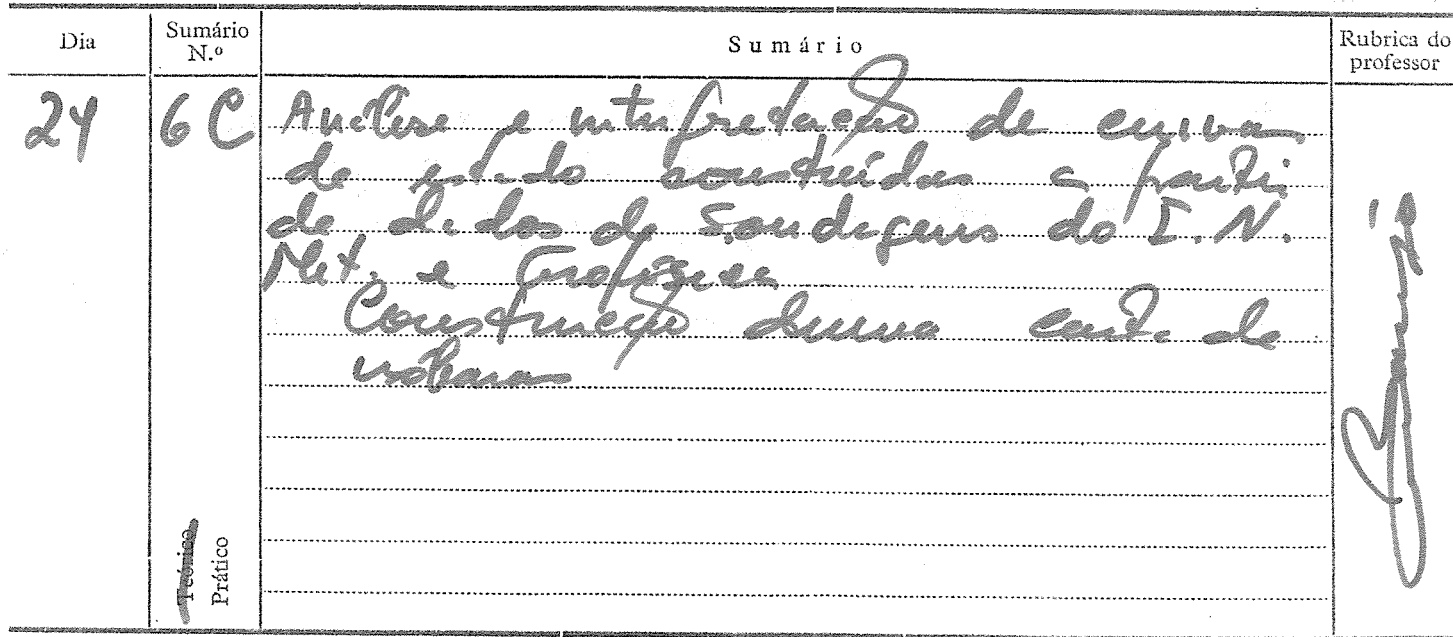 Dia
Sumário N.º
Sumário
Rubrica do professor
24
6 C
Análise e interpretação de curvas
de estado construídas a partir
de dados de sondagens do I. N.
Met. e Geofísica
Construção duma carta de
isóbaras
Teórico
Prático